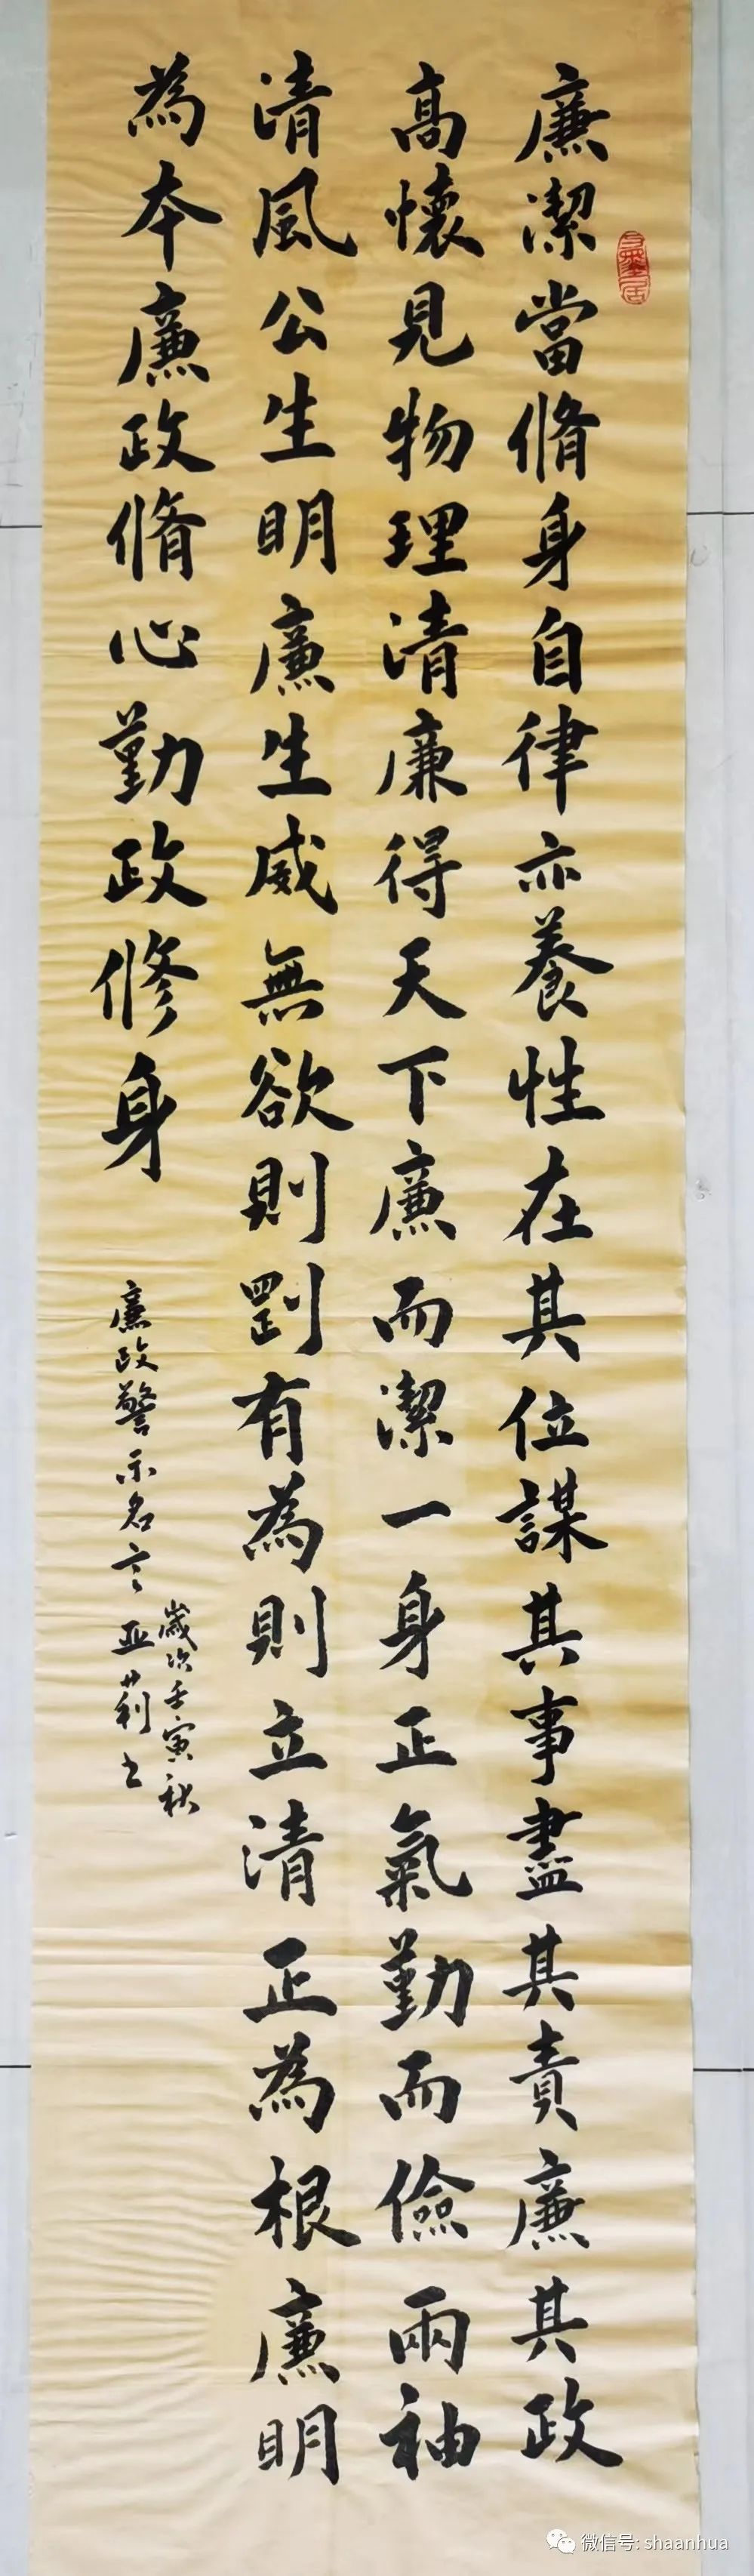 廉潔當脩身自律亦養性在其位謀其事盡其責廉其政
高懷見物理清廉得天下廉而潔一身正氣勤而儉兩袖
清風公生明廉生威無欲則剛有為則立清正為根廉明
為本廉政脩心勤政修身
廉政警示名言
歲次壬寅秋
亚莉书
微信号: shaanhua